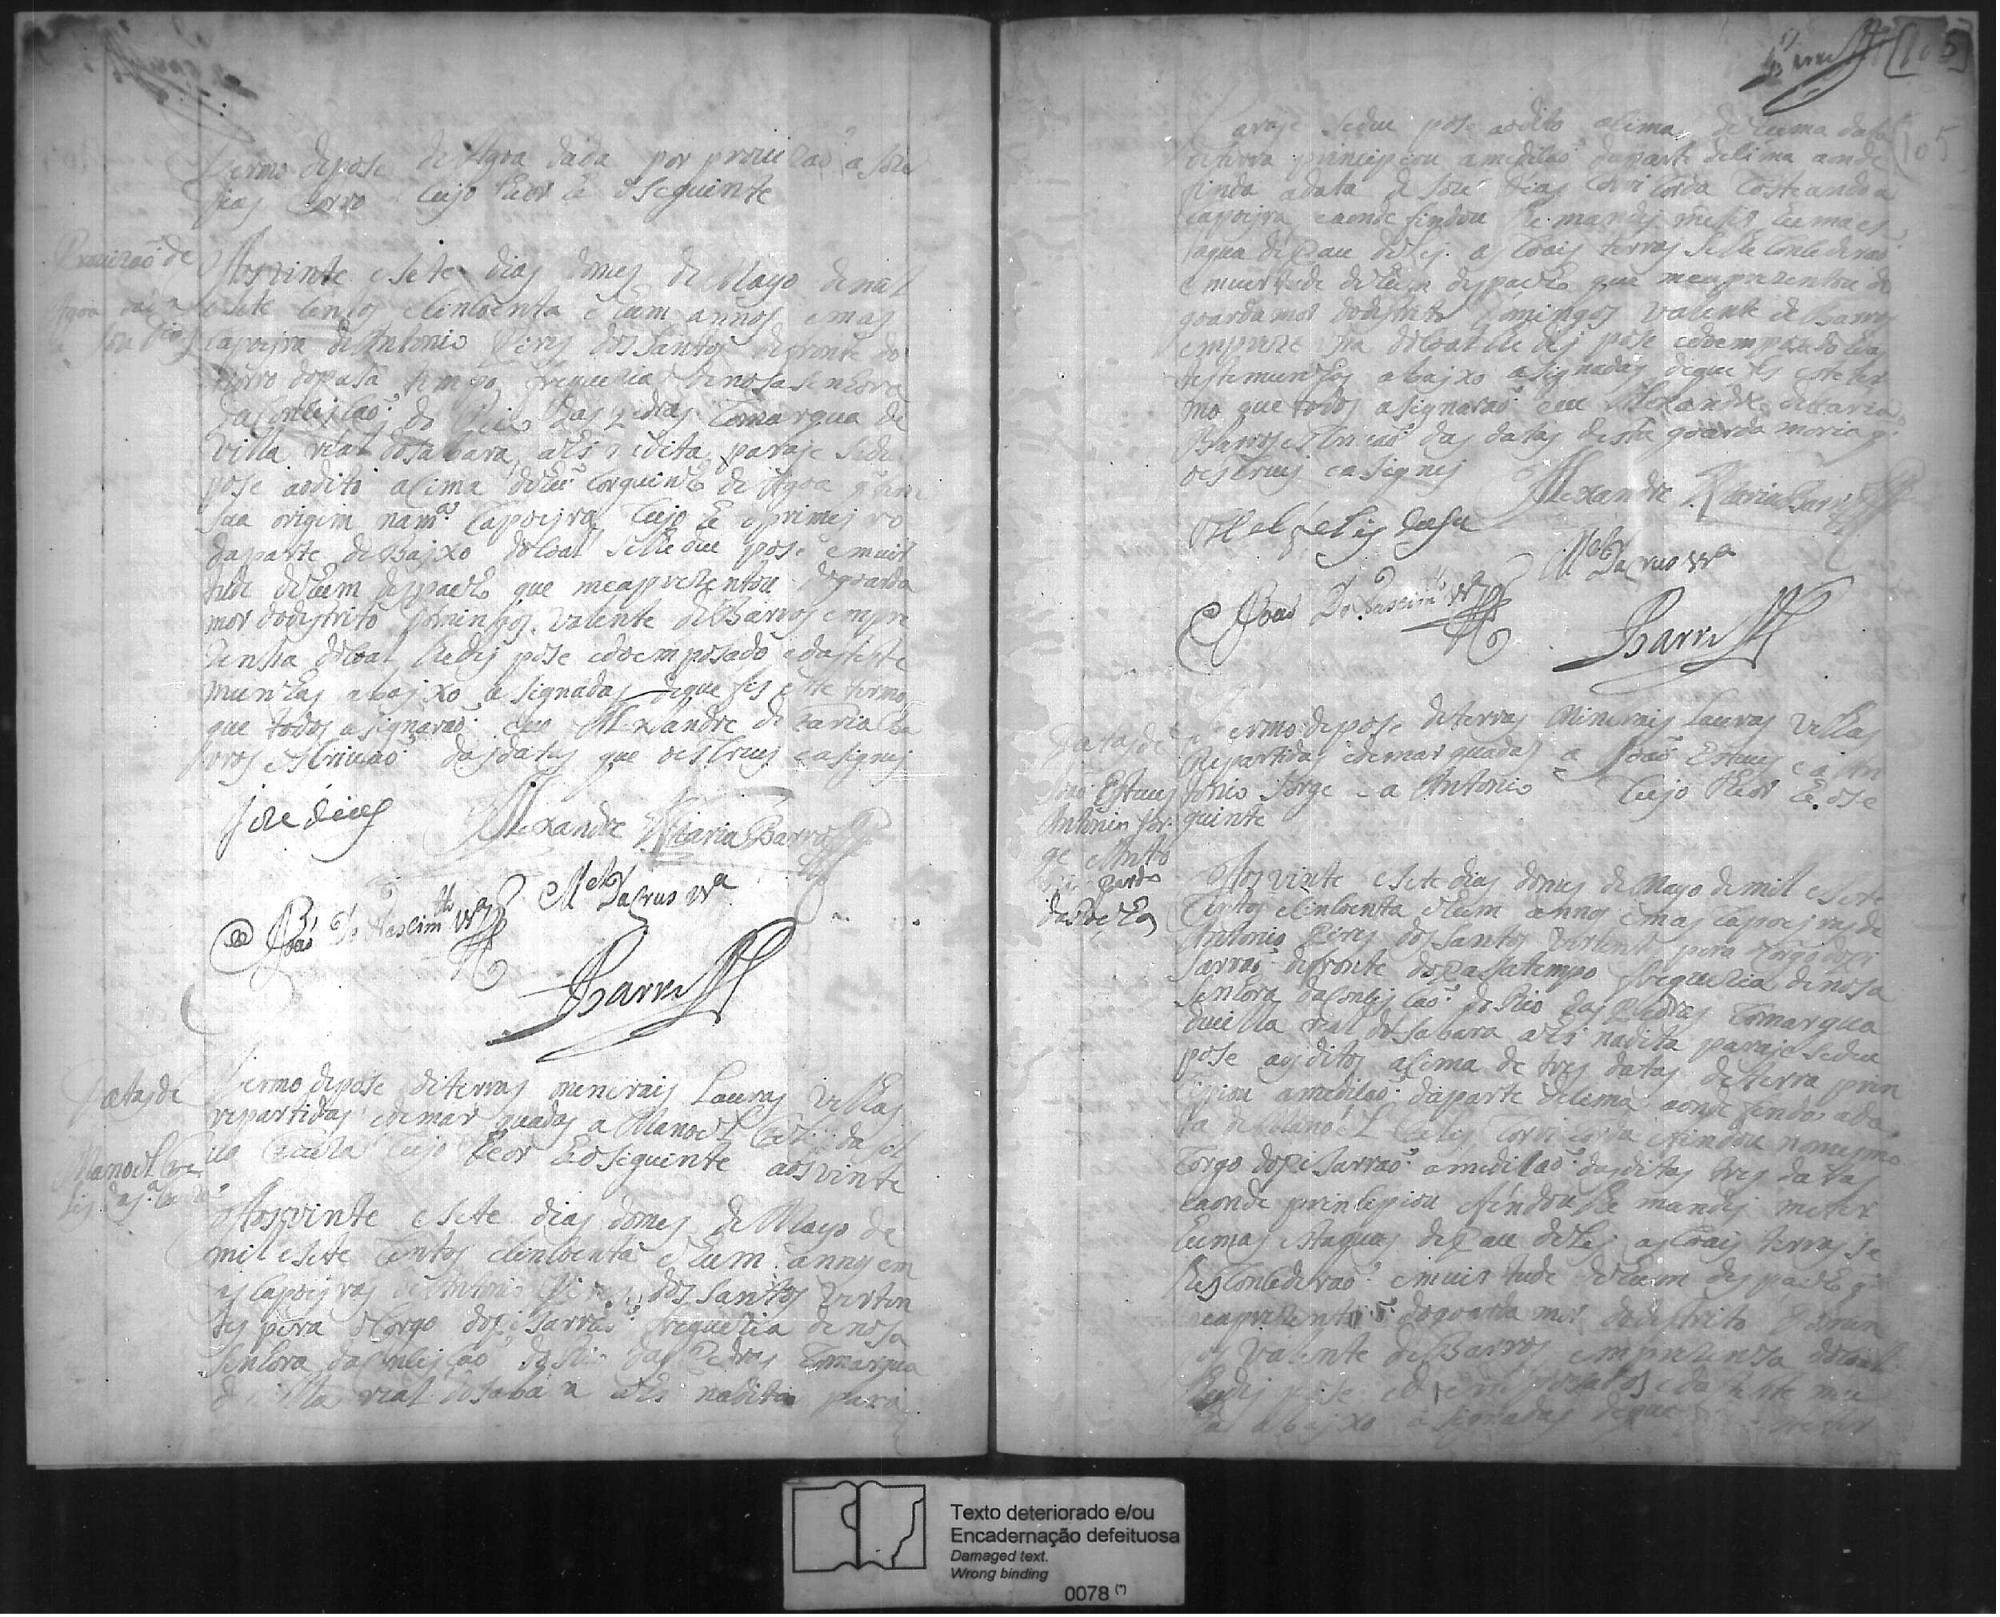 Termo depose de Agoa dada por provizaõ a Joze
dias Corro cujo theor hé o seguinte
Provizaõ de
Agoa dada
a Joze Dias
Aos vinte e sete dias domes de Mayo demil
e sete centos e sincoenta e hum annos e mas
capoejra de Antonio Pires dos Santos defronte do
Morro dopasa tempo freguezia de nosa senhora
da Conseisaõ do Rio das Pedras Comarqua de
villa real dosabara ahi nadita paraje sedeu
pose aodito asima dehu corguinho de Agoa q tem
sua origim nam.ª capoejra cujo he o primejro
daparte de Bajxo doCoal selhe deu pose emuir
tude dehum despacho que meaprezentou dogoarda
mor dodistrito Domingos Valente de Barros empre
zensa doCoal lhedej pose edoemposado edasteste
munhas abajxo asignadas deque fis este termo
que todos asignaraõ eu Alexandre de Faria Ba
rros escrivaõ dasdatas que oescrevj easignej
joze dias
Alexandre Faria Barros
Joaõ Do Nascim.to Vr.ª
M.el Dacrus Vr.ª
Barros
Datas de
Manoel Cae
Termo depose deterras menerais Lauras velhas
repartidas edemarquadas a Manoel
cujo theor hé oseguinte aosvinte
Aos vinte e sete dias domes de Mayo de
mil e sete centos e sincoenta e hum annos em
as capoejras de Antonio Pires dos Santos verten
tes pera oCorgo dopisarraõ freguezia de nosa
senhora daConseisaõ do Rio das Pedras Comarqua
de villa real dosabara ahi nadita para
Barros
[105]
105
paraje sedeu pose aodito asima dehuma data
deterra principiou amedisaõ daparte desima aonde
finda adata de Joze Dias Corri corda Costeando a
capoejra eaonde findou lhe mandej meter huma es
taqua de Pau deLej as Coais terras selhe Concederaõ
emuertude dehum despacho que meaprezentou do
goardamor dodistrito Domingos Valente de Barros
emprezensa doCoal lhe dej pose edoemposado eas
testemunhas abajxo asignadas deque fis este ter
mo que todos asignaraõ eu Alexandre de Faria
Barros escrivaõ das datas desta goarda moria q
oescrevj easignej
Alexandre Faria Barros
M.el Dacrus Vr.ª
Joaõ Do Nascim.to Vr.ª
Barros
Datas de
Joaõ Esteves
Antonio Jor
ge e Anto
nio Pardo
Termo depose deterras Minerais Lauras velhas
Repartidas edemarquadas a Joaõ Esteves e a An
tonio Jorge e a Antonio cujo theor hé ose
guinte
Aos vinte e sete dias domes de Mayo de mil e sete
centos e sincoenta e hum annos emas capoejras de
Antonio Pires dos Santos vertentes pera oCorgo dopi
sarraõ defronte dopasatempo freguezia denosa
senhora daConseisaõ do Rio das Pedras Comarqua
devilla real dosabara ahi nadita paraje sedeu
pose aosditos asima de tres datas deterra prin
sipiou amedisaõ daparte desima aonde finda ada
ta de Manoel Corri corda efindou nomesmo
Corgo dopisarraõ amedisaõ dasditas tres datas
eaonde prinsepiou efindou lhe mandej meter
humas estaquas dePau deLej as Coais terras se
lhes Concederaõ emuirtude dehum despacho q
meaprezentou dogoarda mor dodistrito Domin
gos Valente deBarros emprezensa doCoal
lhedej pose edoemposados edasteste mu
nhas abajxo asignadas deque
Texto deteriorado e/ou
Encadernação defeituosa
Damaged text.
Wrong binding
0078 (*)